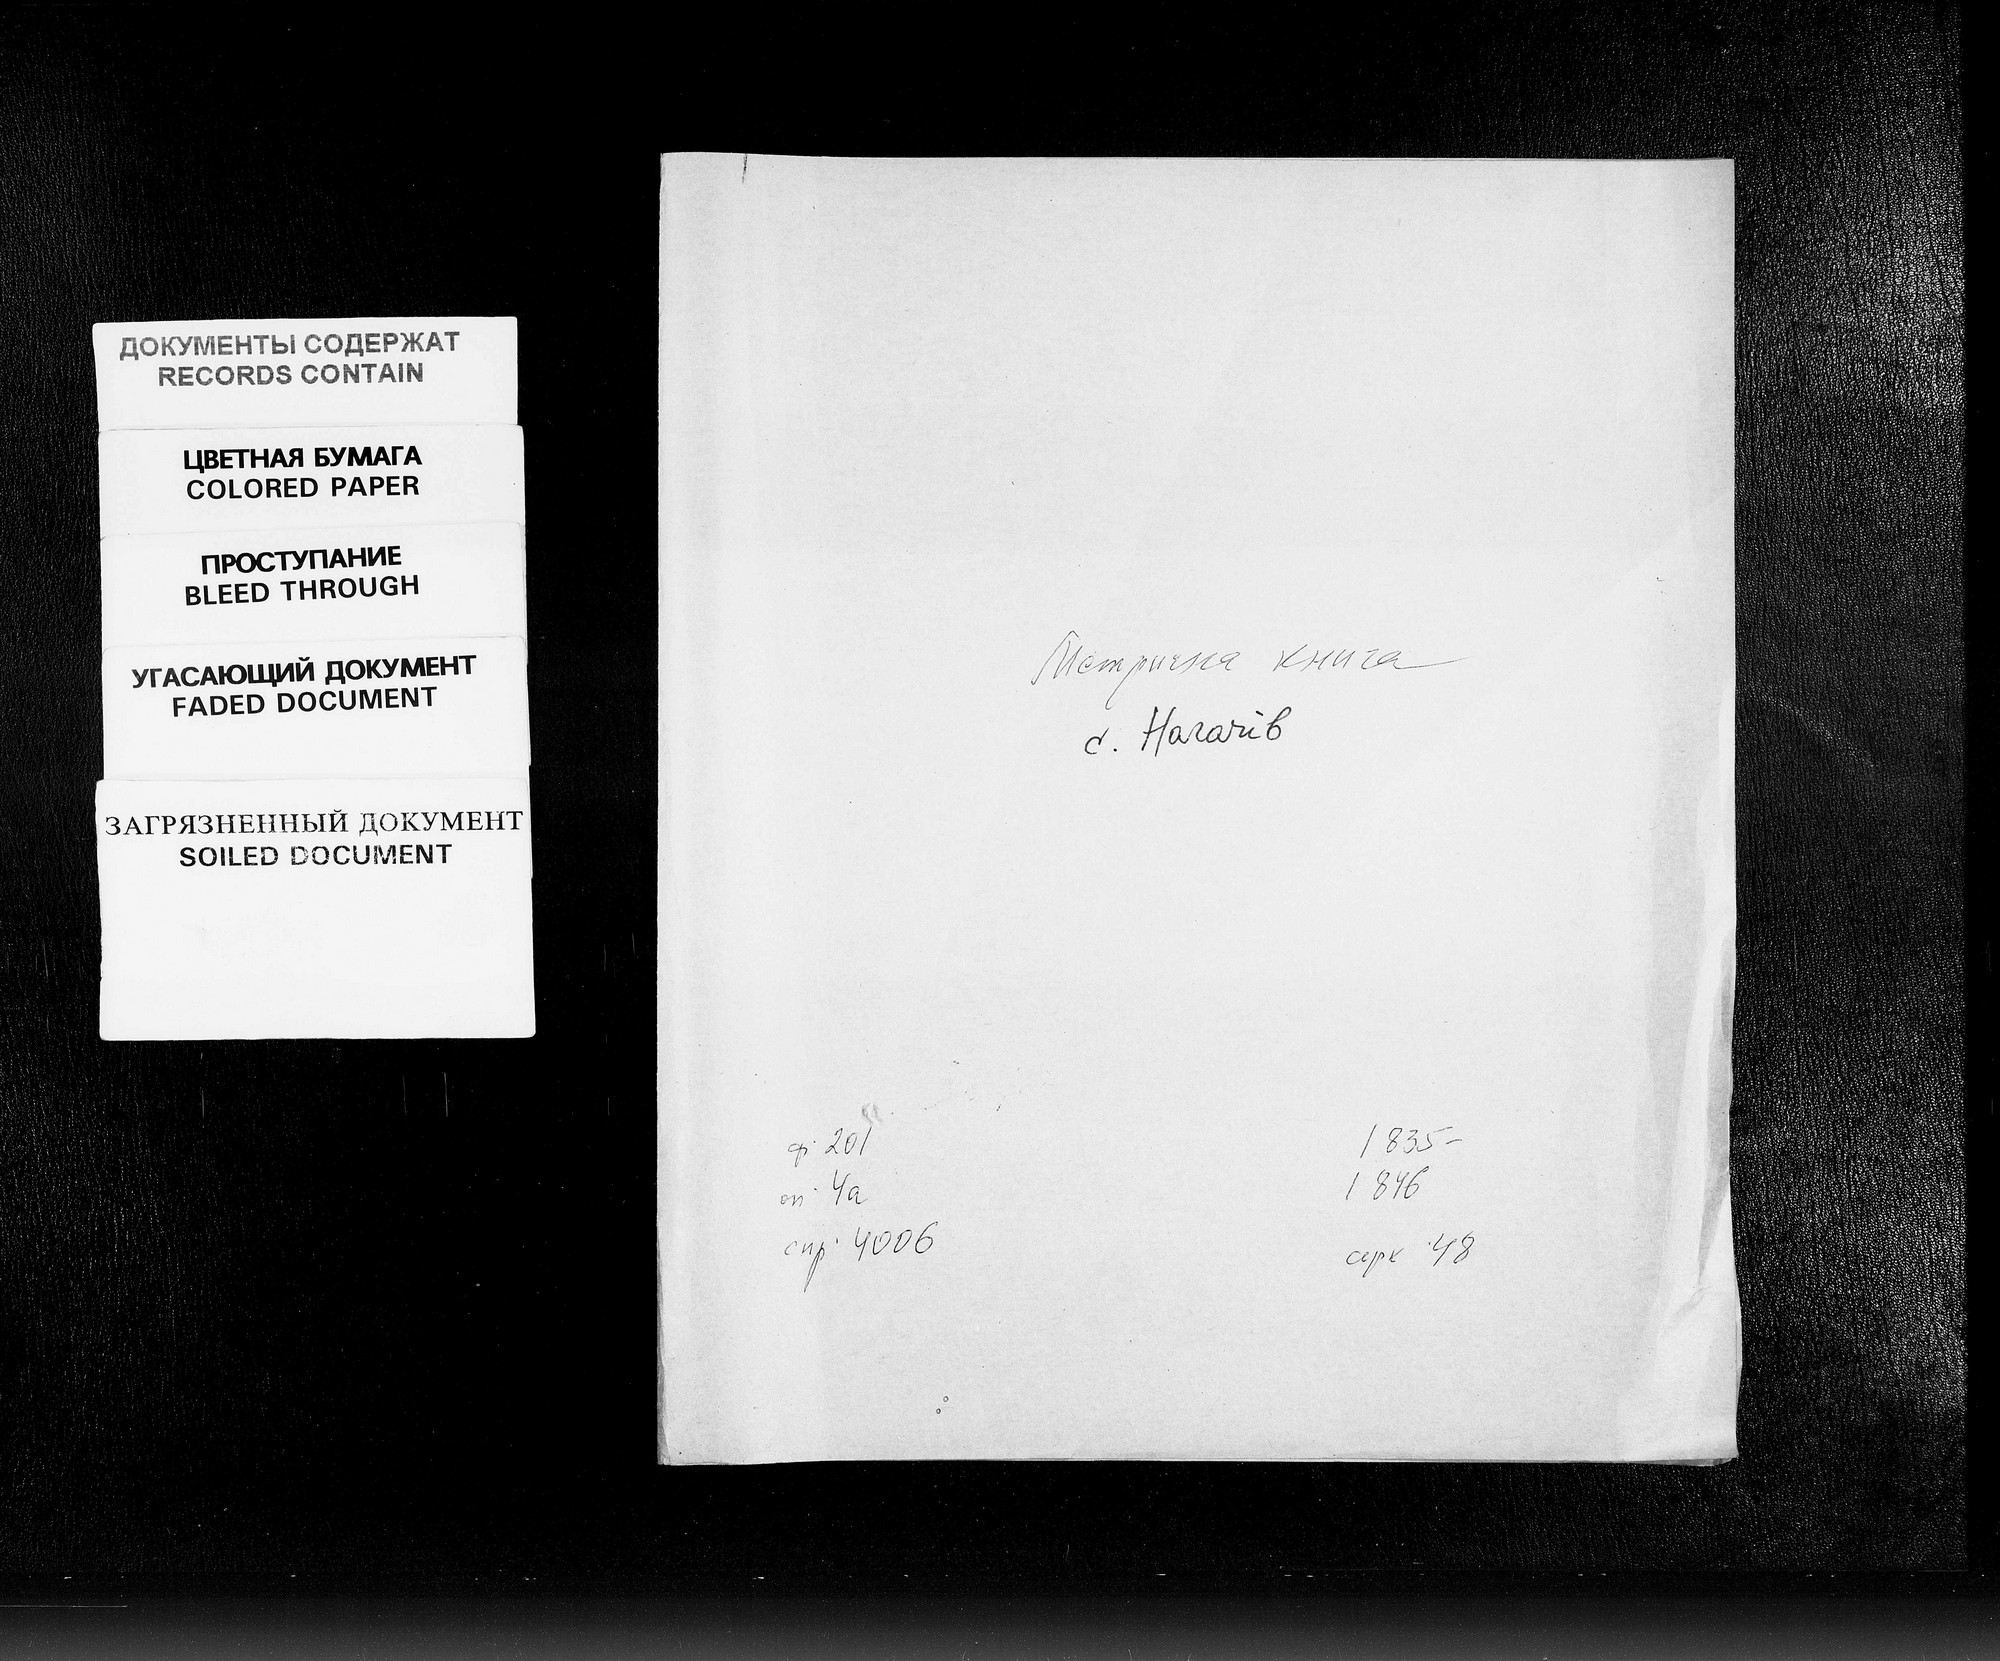 ДОКУМЕНТЫ СОДЕРЖАТ
RECORDS CONTAIN
ЦВЕТНАЯ БУМАГА
COLORED PAPER
ПРОСТУПАНИЕ
BLEED THROUGH
УГАСАЮЩИЙ ДОКУМЕНТ
FADED DOCUMENT
ЗАГРЯЗНЕННЫЙ ДОКУМЕНТ
SOILED DOCUMENT
Метрична книга
с. Нагачів
ф. 201
оп. 4а
спр. 4006
1835-
1846
арк. 48